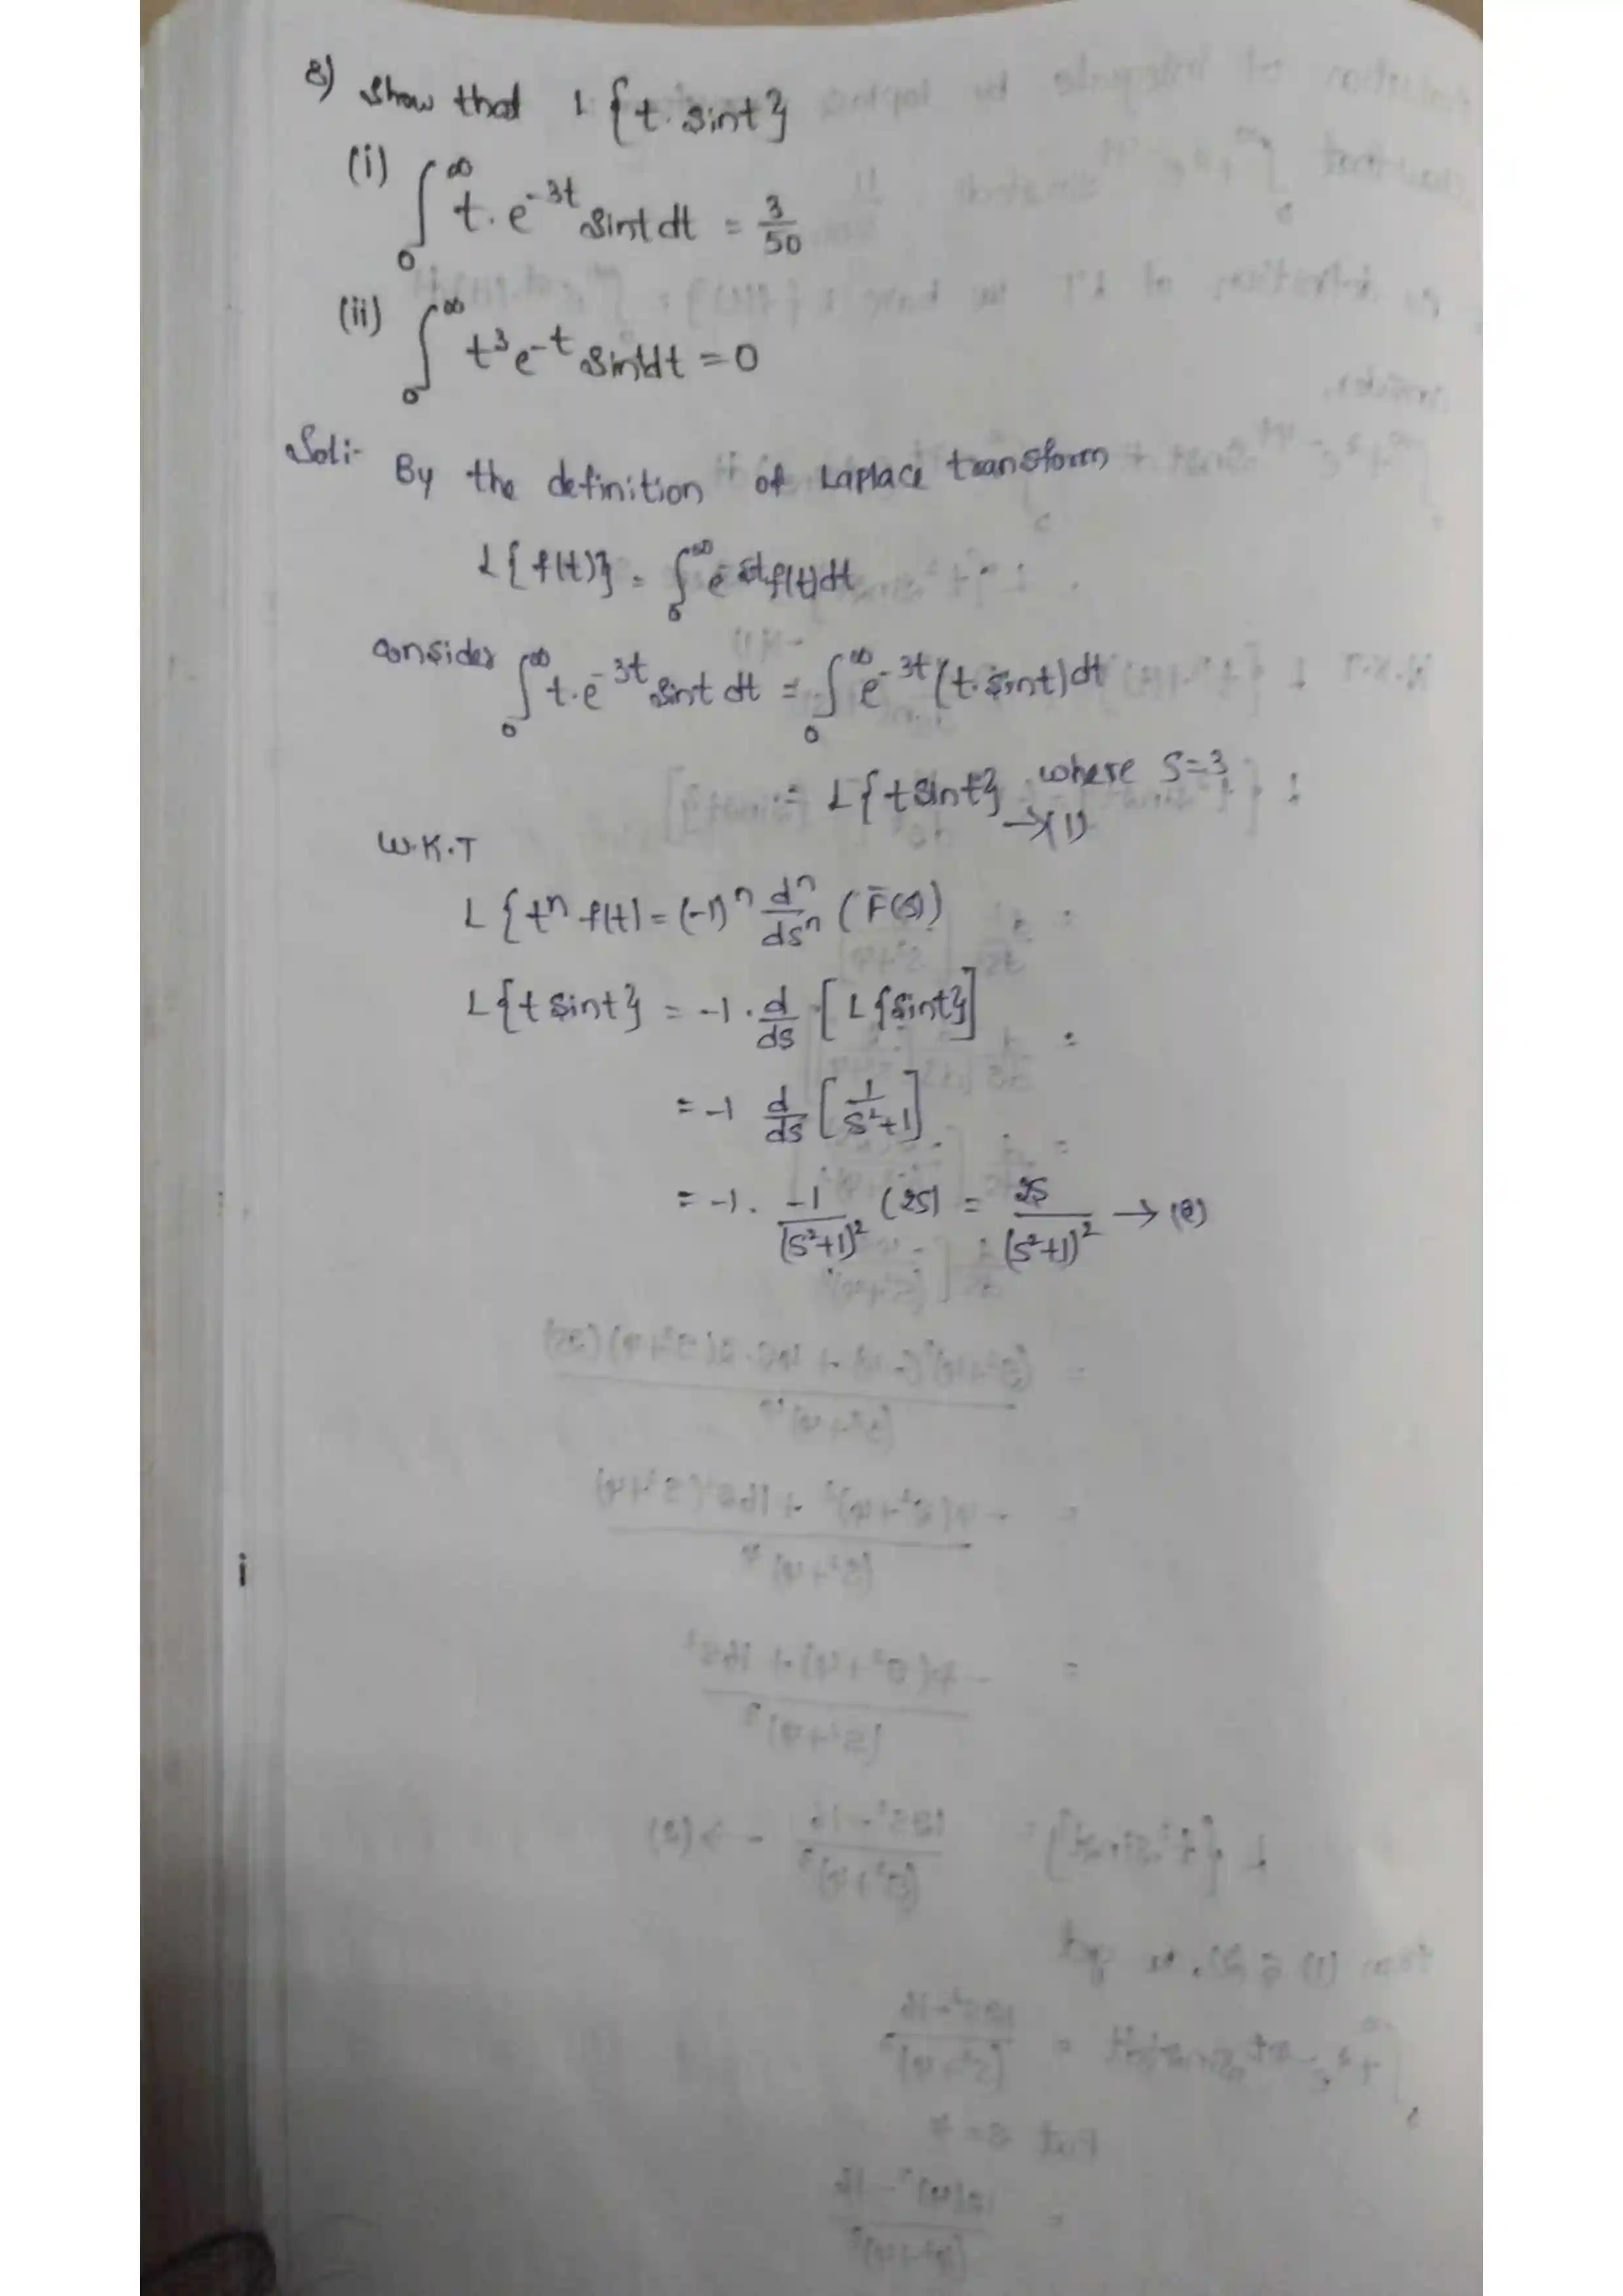 8) Show that L{t. sint}
(i) ∫₀^∞ t. e^-3t sint dt = 3/50
(ii) ∫₀^∞ t³e^-t sint dt = 0
Sol:- By the definition of Laplace transform
L{f(t)} = ∫₀^∞ e^-st f(t)dt
Consider ∫₀^∞ t.e^-3t sint dt = ∫₀^∞ e^-3t (t.sint)dt
= L{tsint} where S=3 →(1)
W.K.T
L{t^n f(t) = (-1)^n d^n/ds^n (F̄(s))
L{t sint} = -1 . d/ds [L{sint}]
= -1 d/ds [1/s²+1]
= -1. -1/(s²+1)² (2s) = 2s/(s²+1)² → (2)